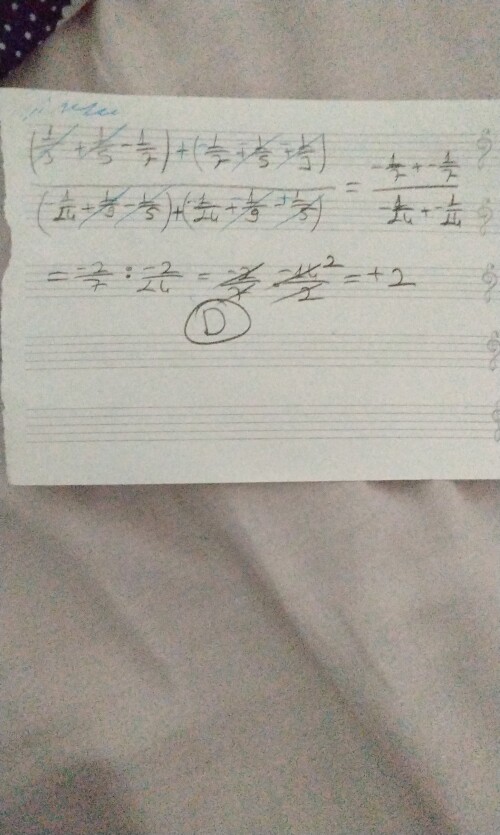 (1/3 + 1/5 - 1/7) + (-1/7 + 1/5 + 1/3) = -1/7 + -1/7
(-1/14 + 1/9 - 1/5) + (-1/14 + 1/9 + 1/5) -1/14 + -1/14
= -2/7 : -2/14 = -2/7 -14/2 2 = +2
D